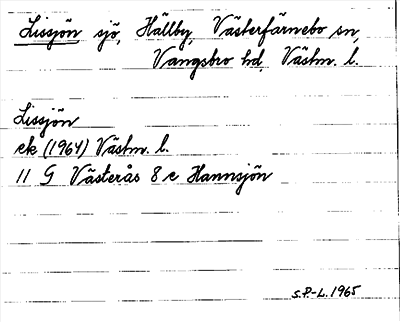 Lissjön sjö, Hällby, Västerfärnebo sn,
Vangsbro hd, Västm. l.
Lissjön
ek (1964) Västm. l.
11 G Västerås 8 c Hannsjön
S.P-L. 1965